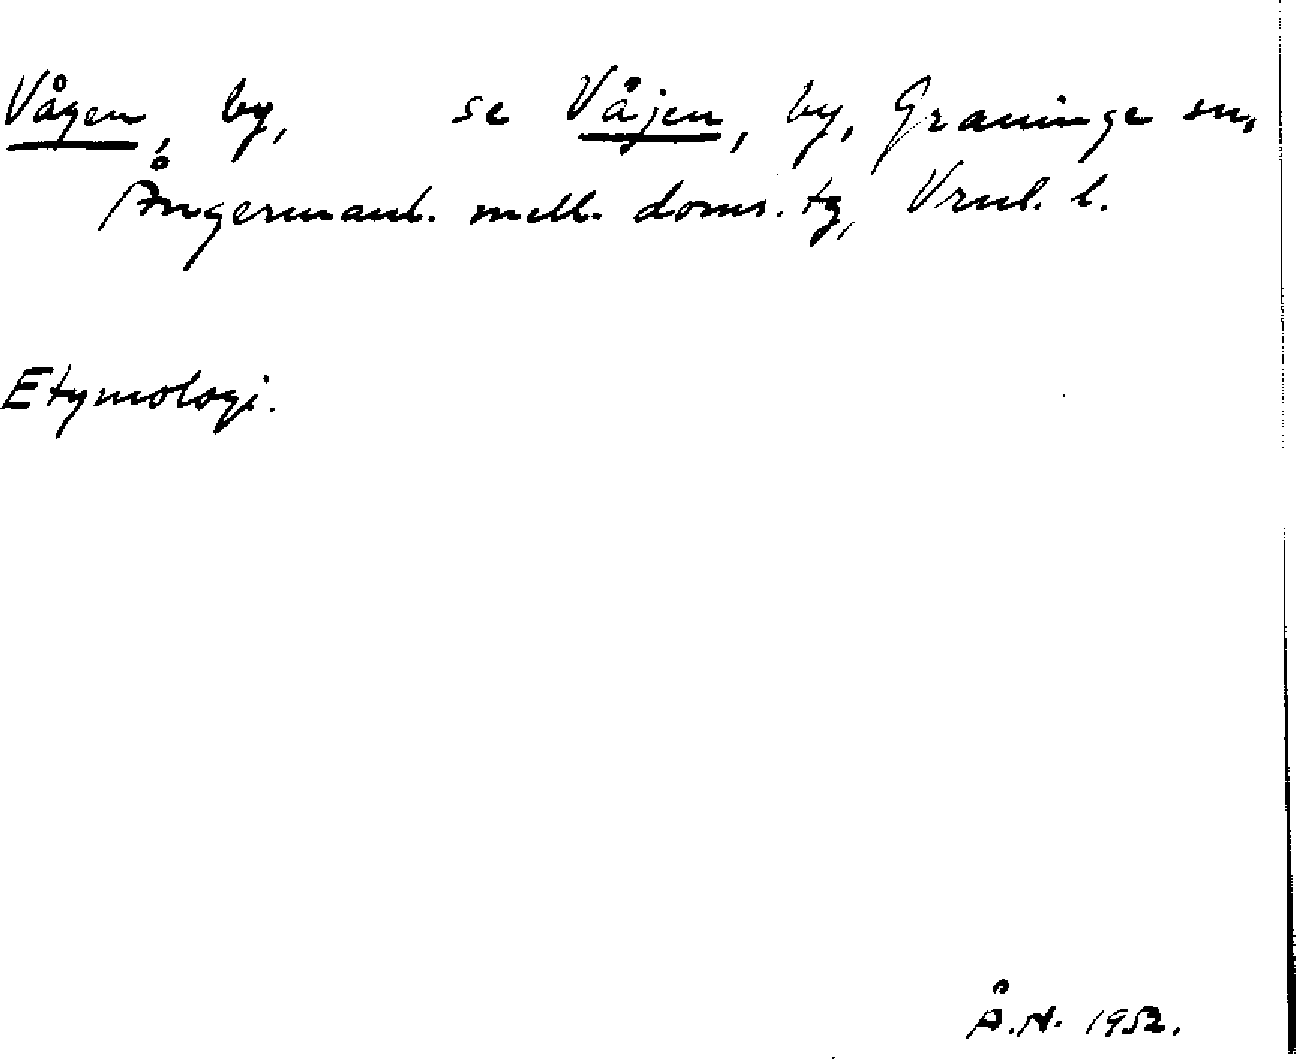 Vågen, by, se Våjen, by, Graninge sn,
Ångermanl. mell. doms. tg, Vrnl. l.
Etymologi.
Å.N. 1952.